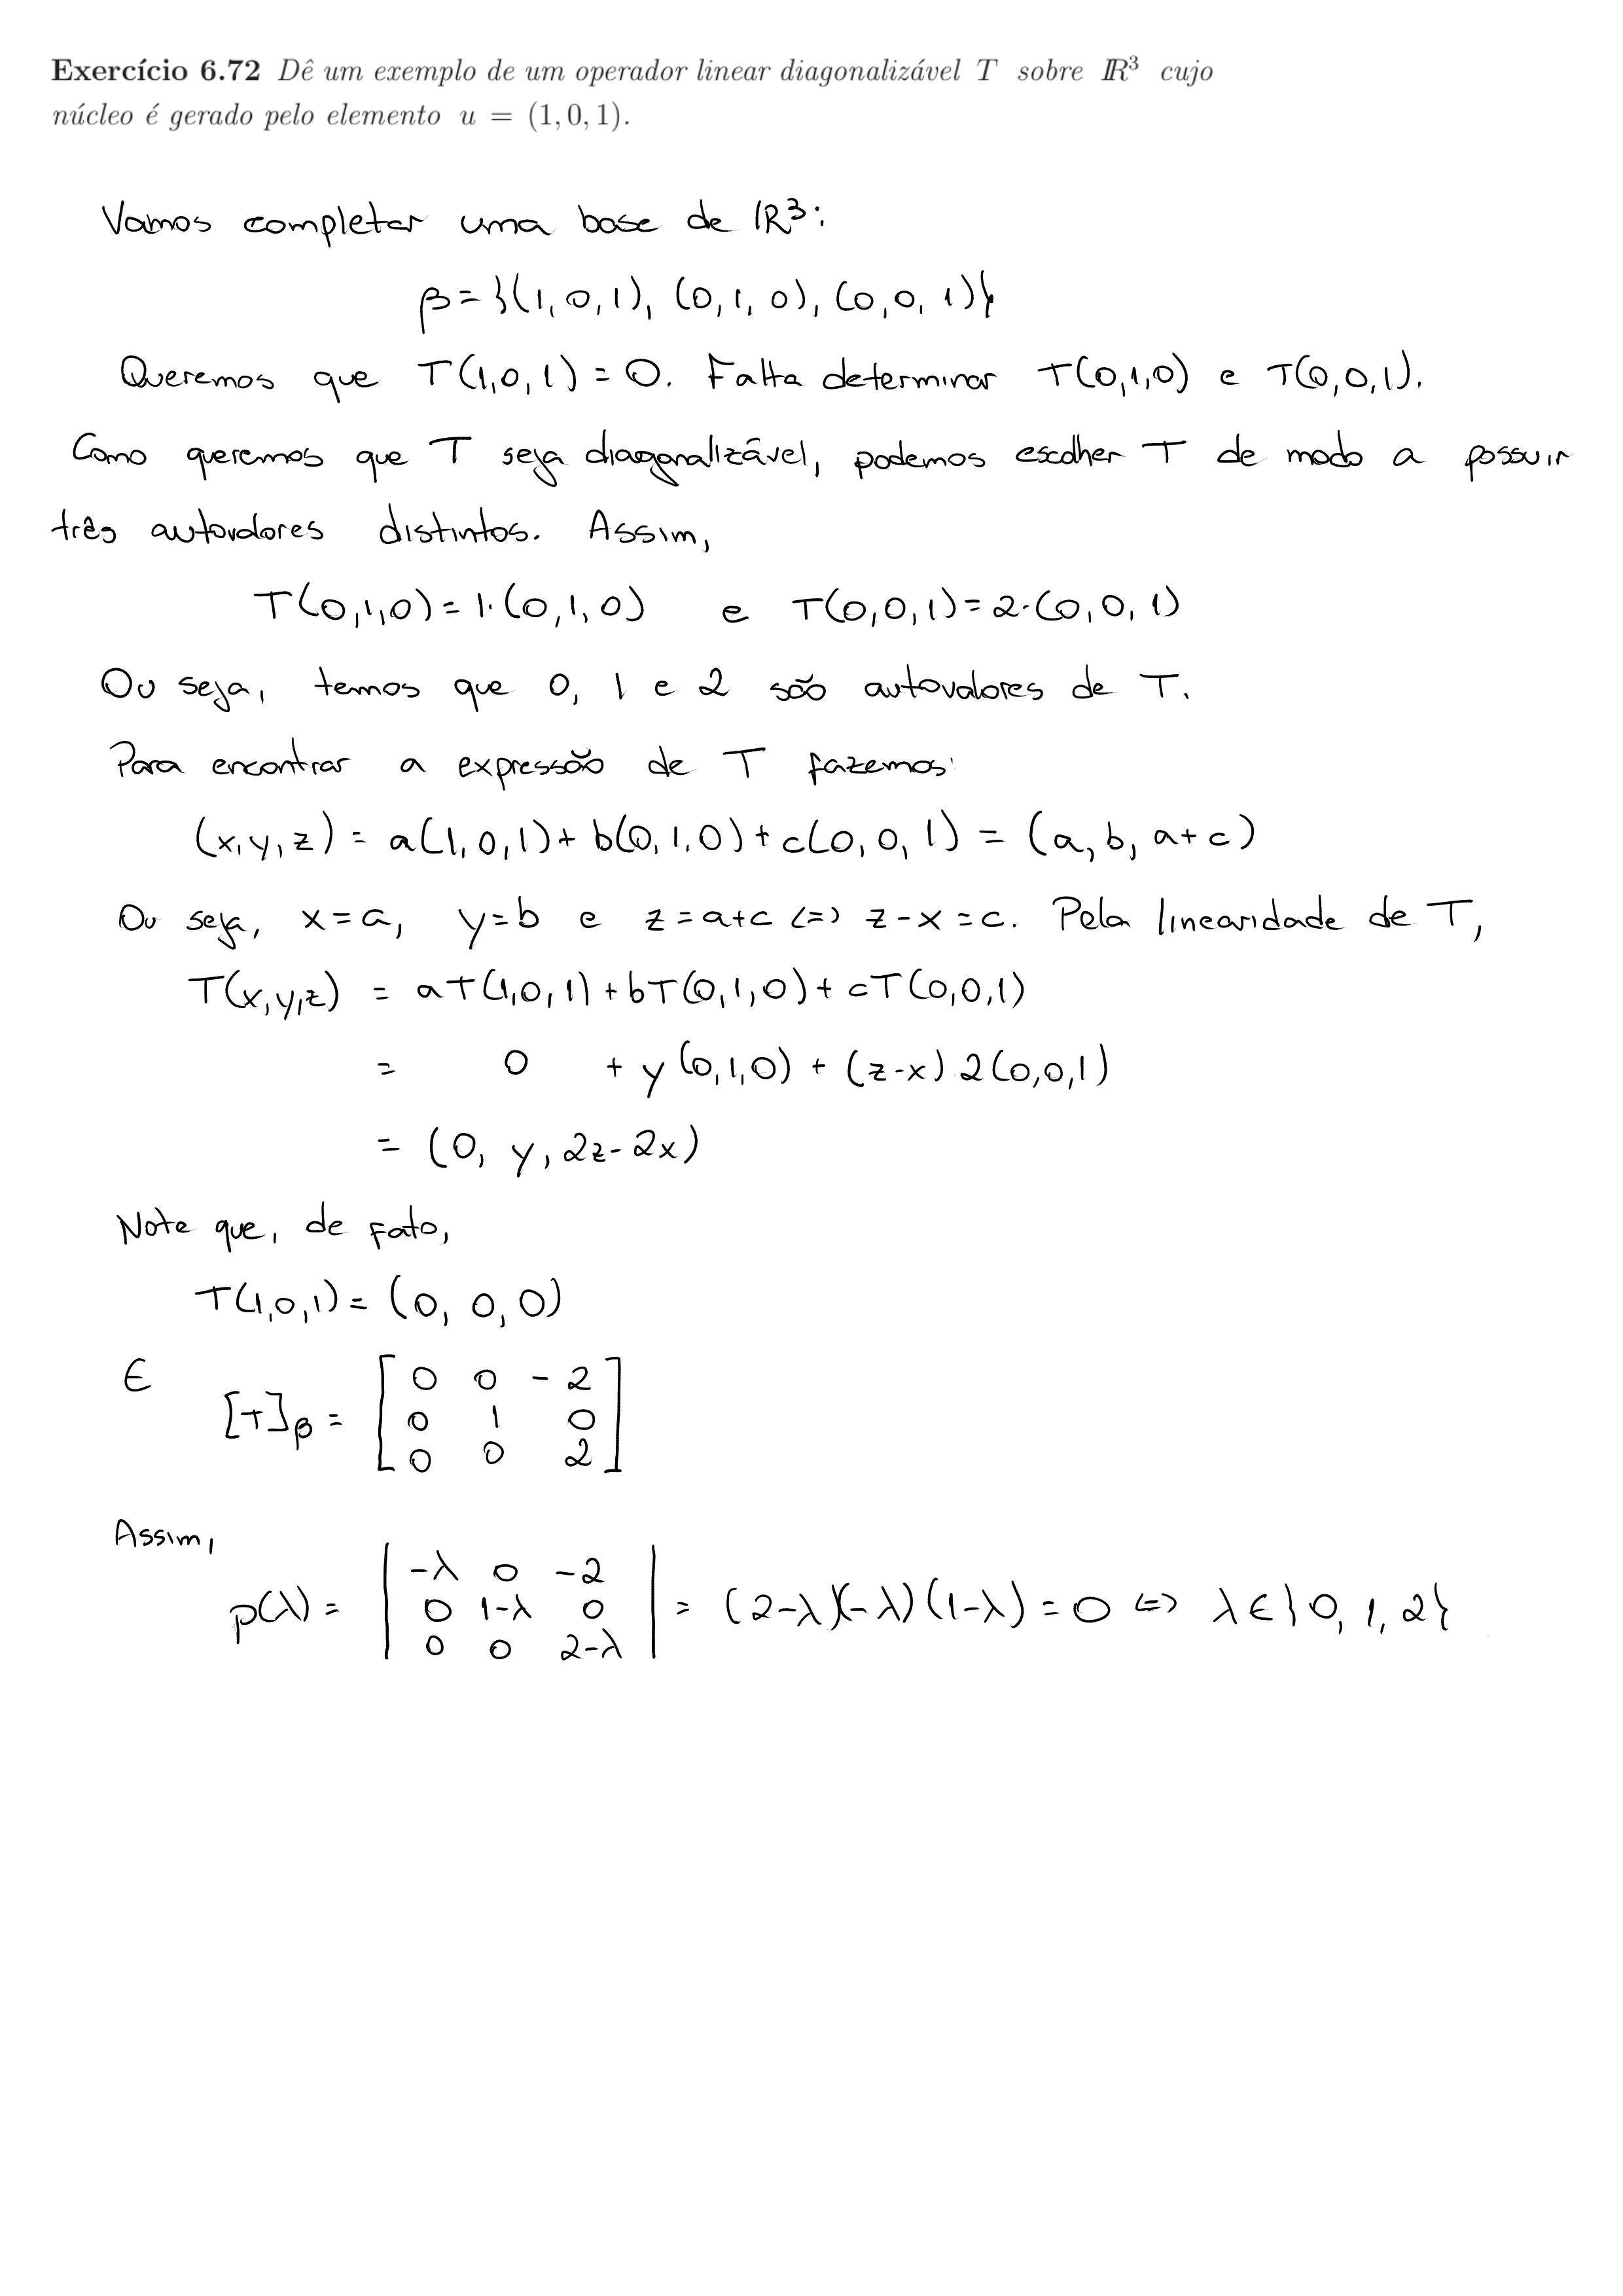 Exercício 6.72 Dê um exemplo de um operador linear diagonalizável T sobre ℝ³ cujo
núcleo é gerado pelo elemento u = (1, 0, 1).
Vamos completar uma base de ℝ³:
β = {(1, 0, 1), (0, 1, 0), (0, 0, 1)}
Queremos que T(1,0,1) = 0. Falta determinar T(0,1,0) e T(0,0,1).
Como queremos que T seja diagonalizável, podemos escolher T de modo a possuir
três autovalores distintos. Assim,
T(0,1,0) = 1·(0,1,0) e T(0,0,1) = 2·(0,0,1)
Ou seja, temos que 0, 1 e 2 são autovalores de T.
Para encontrar a expressão de T fazemos:
(x,y,z) = a(1,0,1) + b(0,1,0) + c(0,0,1) = (a, b, a+c)
Ou seja, x = a, y = b e z = a+c <=> z-x = c. Pela linearidade de T,
T(x,y,z) = aT(1,0,1) + bT(0,1,0) + cT(0,0,1)
= 0 + y(0,1,0) + (z-x)2(0,0,1)
= (0, y, 2z-2x)
Note que, de fato,
T(1,0,1) = (0, 0, 0)
E [T]β = [0 0 -2
0 1 0
0 0 2]
Assim,
p(λ) = |-λ 0 -2
0 1-λ 0
0 0 2-λ| = (2-λ)(-λ)(1-λ) = 0 <=> λ ∈ {0, 1, 2}